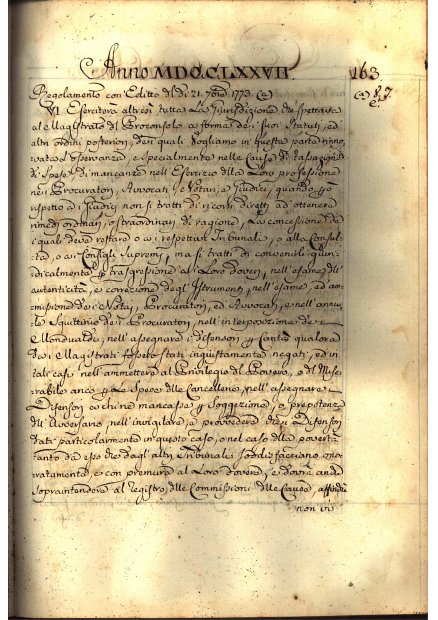 Anno MDCCLXXVII. 163
Regolamento con Editto del dì 21. 7bre 1773. (a)
(a)
VI Eserciterà altresì tutta la Giurisdizione che spettava
al Magistrato di Proconsolo a forma dei suoi Statuti, ed
altri ordini posteriori, dei quali vogliamo in questa parte rinno-
vata l'osservanza, e specialmente nelle Cause di Tassazioni
di Spese, di mancanze nell'Esercizio della Loro professione
nei Procuratori, Avvocati e Notari, o Giudici, quando p
rispetto a i Giudici non si tratti di ricorsi diretti ad ottenere
rimedj ordinarj, o straordinarj di ragione, la concessione de
i quali deve restare o a i respettivi Tribunali, o alla Consul-
ta, o a i Consigli Supremi, ma si tratti di convenirli giuri-
dicamente p trasgressione ai Loro doveri, nell'esame dell'
autenticità, e correzione degl'Istrumenti, nell'esame, ed am-
missione dei Notari, Procuratori, ed Avvocati, e nell'annua
le Squittinio dei Procuratori, nell'interposizione de i
Mondualdi, nell'assegnare i difensori p Carità qualora
da i Magistrati fossero stati ingiustamente negati, ed in
tali casi nell'ammettere al Privilegio di Povera, o di Mise-
rabile anco p le Spese delle Cancellerie, nell'assegnare
Difensori a chi ne mancasse p Soggezione, o prepotenza
dell'Avversario, nell'invigilare, e provvedere che i Difensori
Dati particolarmente in questo caso, o nel caso della povertà
tanto da esso che dagl'altri Tribunali soddisfacciano ono-
ratamente, e con premura al Loro dovere, e dovrà anco
Sopraintendere al registro delle Commissioni delle Cause,
non vi